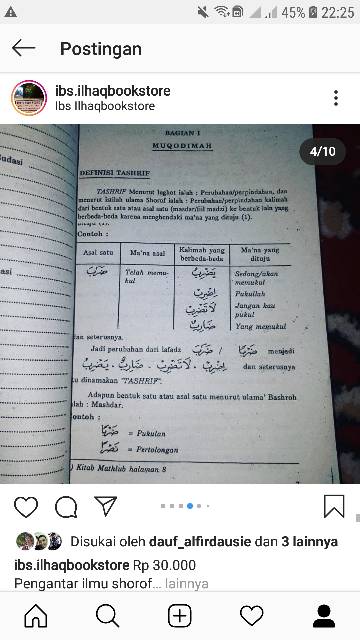 45% 22:25
Postingan
ibs.ilhaqbookstore
Ibs Ilhaqbookstore
4/10
BAGIAN I
MUQODIMAH
DEFINISI TASHRIF
TASHRIF Menurut loghot ialah : Perubahan/perpindahan, dan
menurut istilah ulama Shorof ialah : Perubahan/perpindahan kalimah
dari bentuk satu atau asal satu (masdar/fiil madzi) ke bentuk lain yang
berbeda-beda karena menghendaki ma'na yang dituju (1).
Contoh :
Asal satu Ma'na asal Kalimah yang berbeda-beda Ma'na yang dituju
ضَرَبَ Telah memukul يَضْرِبُ Sedang/akan memukul
اِضْرِبْ Pukullah
لَاتَضْرِبْ Jangan kau pukul
ضَارِبٌ Yang memukul
dan seterusnya.
Jadi perubahan dari lafadz ضَرَبَ / ضَرْبًا menjadi
يَضْرِبُ . ضَارِبٌ . لَاتَضْرِبْ . اِضْرِبْ dan seterusnya
dinamakan "TASHRIF".
Adapun bentuk satu atau asal satu menurut ulama' Bashroh
: Mashdar.
ontoh :
ضَرْبًا = Pukulan
نَصْرًا = Pertolongan
) Kitab Mathlub halaman 8
Disukai oleh dauf_alfirdausie dan 3 lainnya
ibs.ilhaqbookstore Rp 30.000
Pengantar ilmu shorof... lainnya